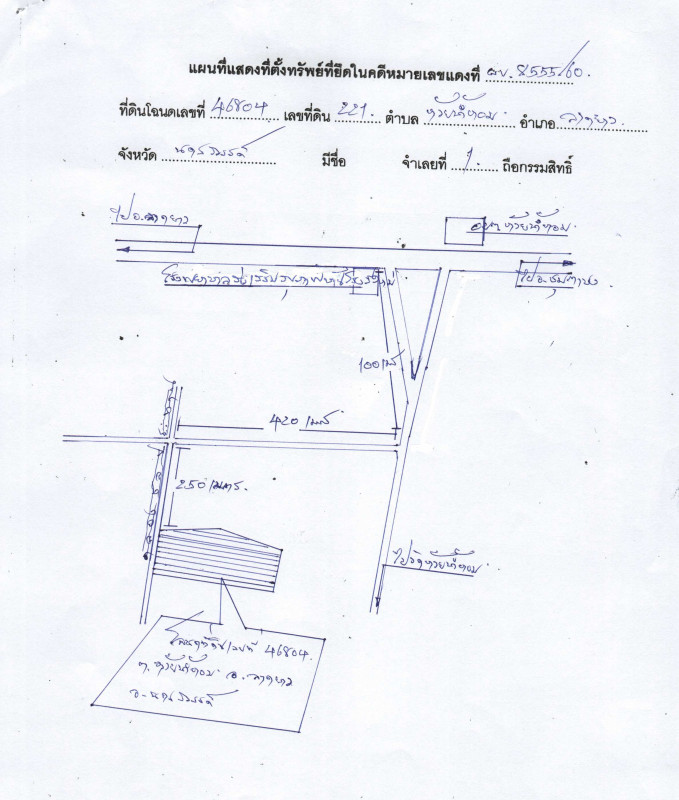 แผนที่แสดงที่ตั้งทรัพย์ที่ยึดในคดีหมายเลขแดงที่ ผบ. 8555/60.
ที่ดินโฉนดเลขที่ 46804 เลขที่ดิน 221. ตำบล ห้วยน้ำหอม อำเภอ ลาดยาว
จังหวัด นครสวรรค์ มีชื่อ จำเลยที่ 1. ถือกรรมสิทธิ์
ไป อ.ลาดยาว
อบต. ห้วยน้ำหอม
โรงพยาบาลส่งเสริมสุขภาพ
ไป อ.ชุมตาบง
100 เมตร
420 เมตร
250 เมตร.
ไปวัดห้วยน้ำหอม
โฉนดที่ดินเลขที่ 46804.
ต. ห้วยน้ำหอม อ. ลาดยาว
จ. นครสวรรค์